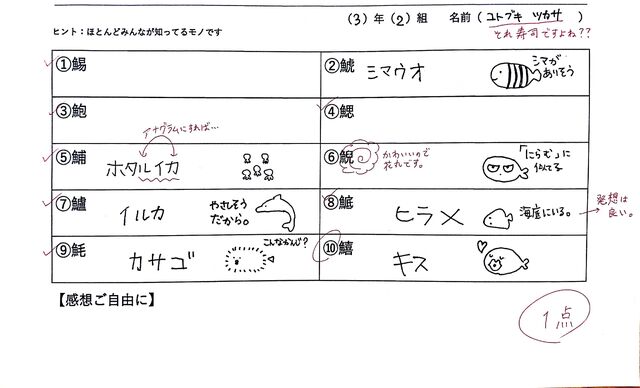 (3)年(2)組　名前(ユトブキ ツカサ)
それ寿司ですよね??
ヒント：ほとんどみんなが知ってるモノです
①鯣
②鯱 シマウオ シマがありそう
③鮑
④鰓
アナグラムにすれば…
⑤鯆 ホタルイカ
⑥鯢 かわいいので花丸です。 「にらむ」に似てる
⑦鱸 イルカ やさしそうだから。
⑧鯳 ヒラメ 海底にいる。 → 発想は良い。
⑨魹 カサゴ こんなかんじ?
⑩鱚 キス
【感想ご自由に】
1点